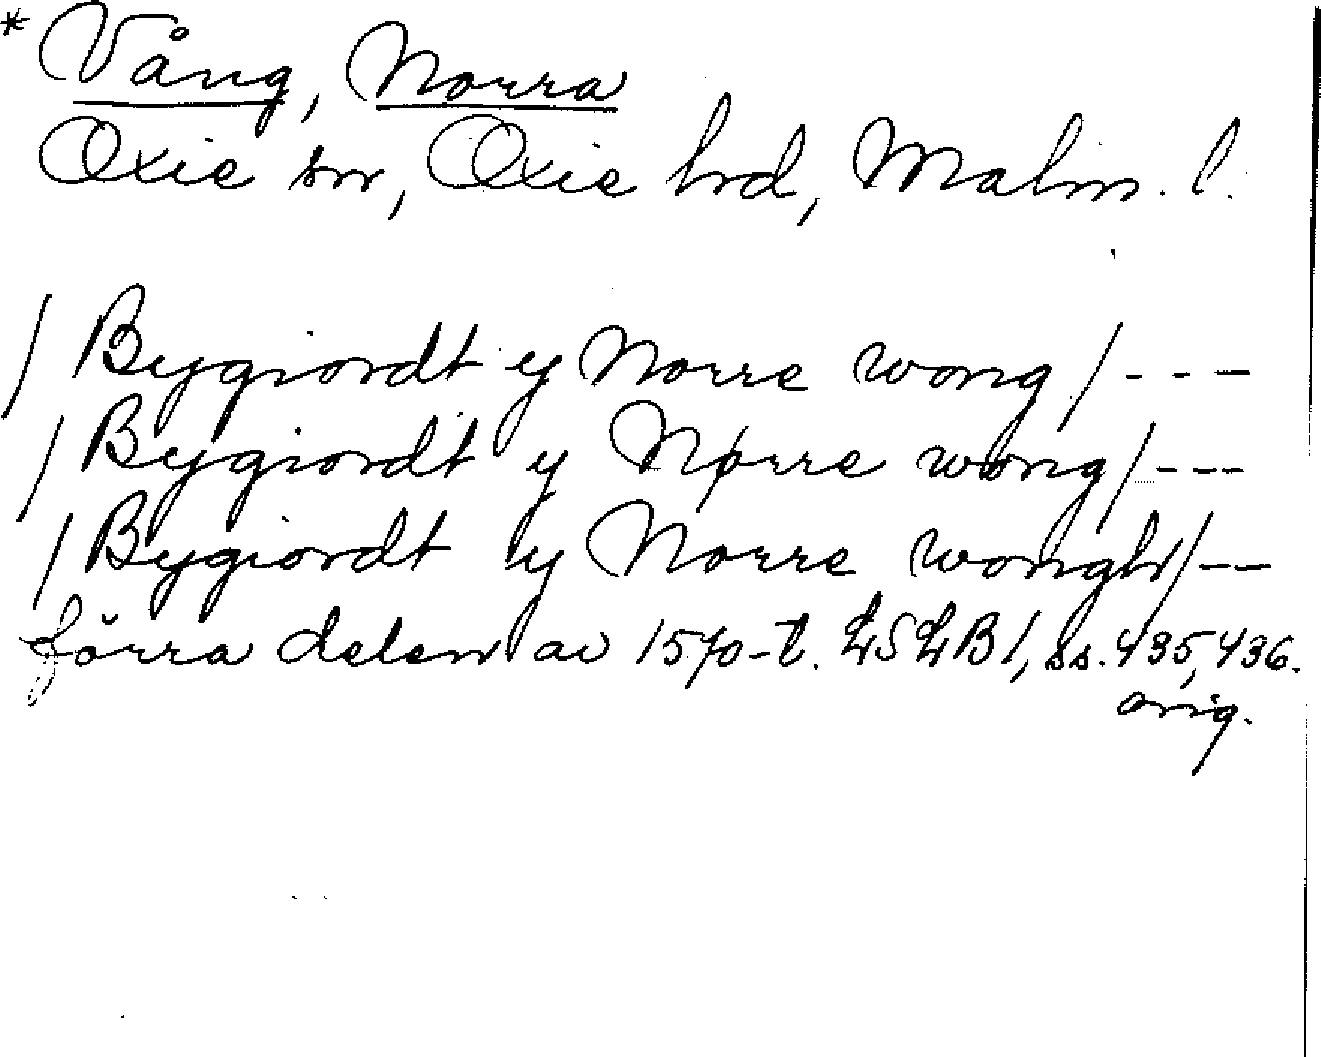 * Vång, Norra
Oxie sn, Oxie hrd, Malm. l.
/ Bygiordt y Norre wong / - - -
/ Bygiordt y Nørre wong / - - -
/ Bygiordt y Norre wongh / - -
förra delen av 1570-t. LSLB 1, ss. 435, 436.
orig.